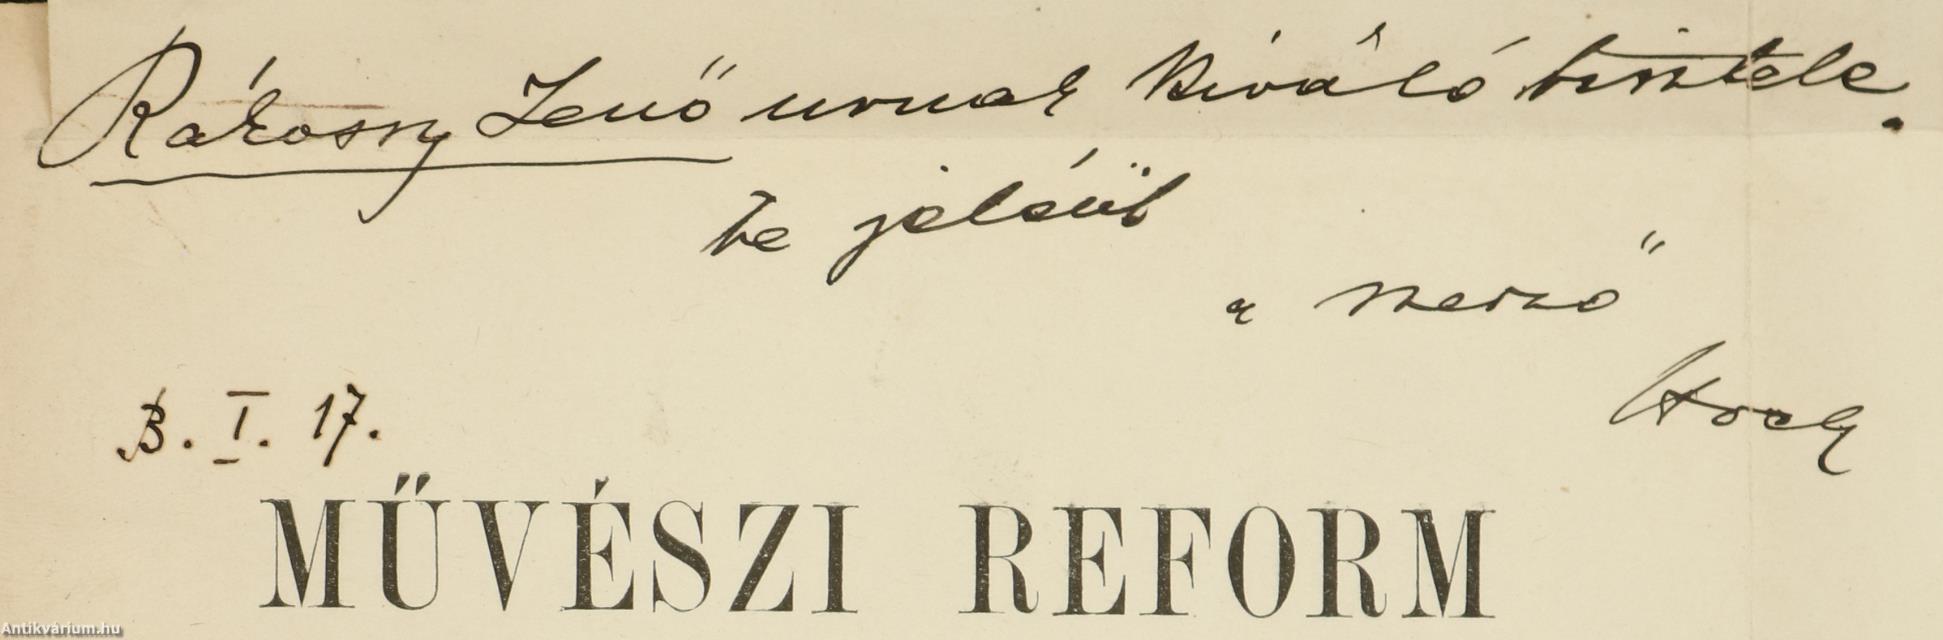 Rákossy Jenő urnak kiváló tisztele
te jeléül
a szerző
Hock
B. I. 17.
MŰVÉSZI REFORM
Antikvárium.hu